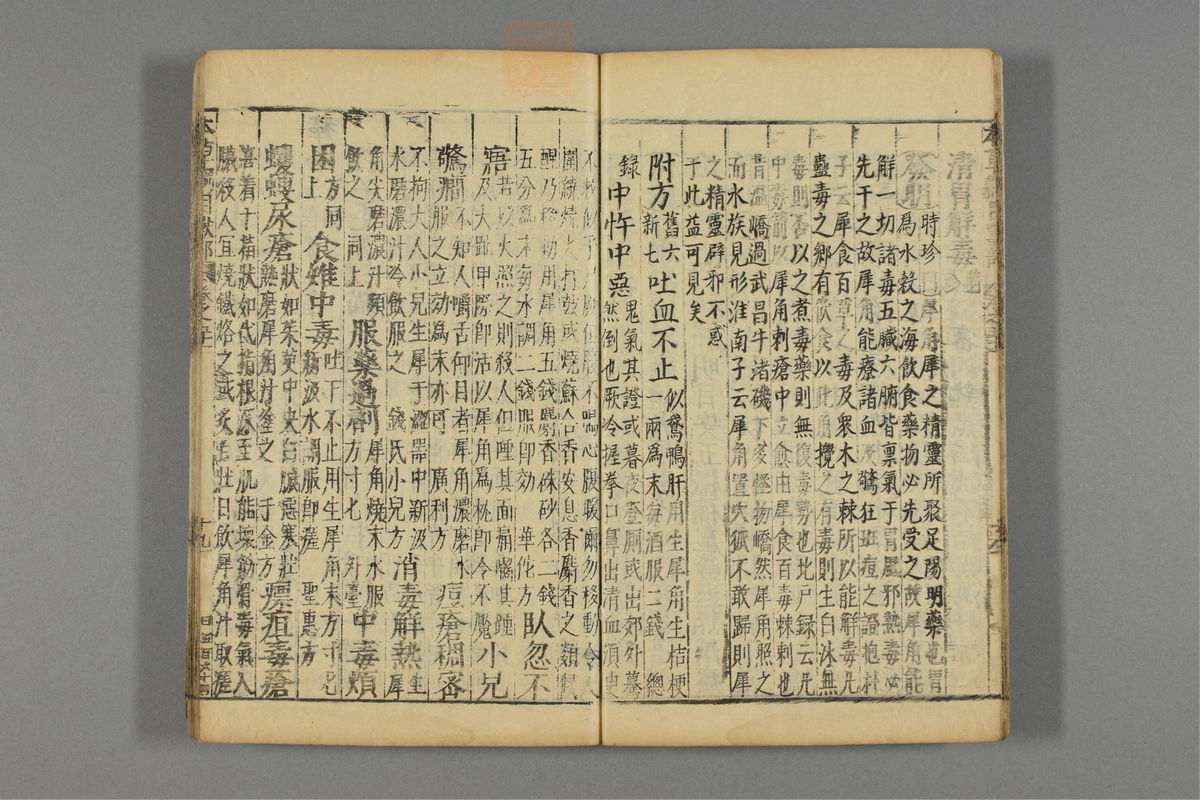 清胃解毒
發明時珍曰犀角犀之精靈所聚足陽明藥也胃
爲水穀之海飲食藥物必先受之故犀角能
解一切諸毒五臟六腑皆稟氣于胃風邪熱毒必
先干之故犀角能療諸血及驚狂斑痘之證抱朴
子云犀食百草之毒及衆木之棘所以能解毒凡
蠱毒之鄉有飲食以此角攪之有毒則生白沫無
毒則否以之煮毒藥則無復毒勢也北戶録云凡
中毒箭以犀角刺瘡中立愈由犀食百毒棘刺也
昔溫嶠過武昌牛渚磯下多怪物嶠然犀角照之
而水族見形淮南子云犀角置穴狐不敢歸則犀
之精靈辟邪不惑
于此益可見矣
附方舊六新七吐血不止似鵞鴨肝用生犀角生桔梗一兩爲末每酒服二錢總
録中忤中惡鬼氣其證或暮夜登厠或出郊外驀然倒也厥冷握拳口鼻出清血須臾
不救似乎尸厥但腹不鳴心腹暖爾勿移動令人圍繞燒火打鼓或燒蘇合香安息香麝香之類候
醒乃移動用犀角五錢麝香硃砂各二錢五分爲末每水調二錢服即効 華佗方 臥忽不
寤若以火照之則殺人但唾其面痛嚙其踵及大趾甲際即活以犀角爲枕即令不魘 小兒
驚癇不知人嚼舌仰目者犀角濃磨水服之立効爲末亦可 廣利方 痘瘡稠密
不拘大人小兒生犀于澀器中新汲水磨濃汁冷飲服之 錢氏小兒方 消毒解熱生犀
角尖磨濃汁頻飲之 同上 服藥過劑犀角燒末水服方寸匕 外臺 中毒煩
困方同上 食雉中毒吐下不止用生犀角末方寸匕新汲水調服即瘥 聖惠方
蠼螋尿瘡狀如茱萸中央白膿惡寒壯熱磨犀角汁塗之 千金方 瘭疽毒瘡
喜着十指狀如代指根深至肌能壞筋骨毒氣入臟殺人宜燒鐵烙之或灸百壯日飲犀角汁取瘥